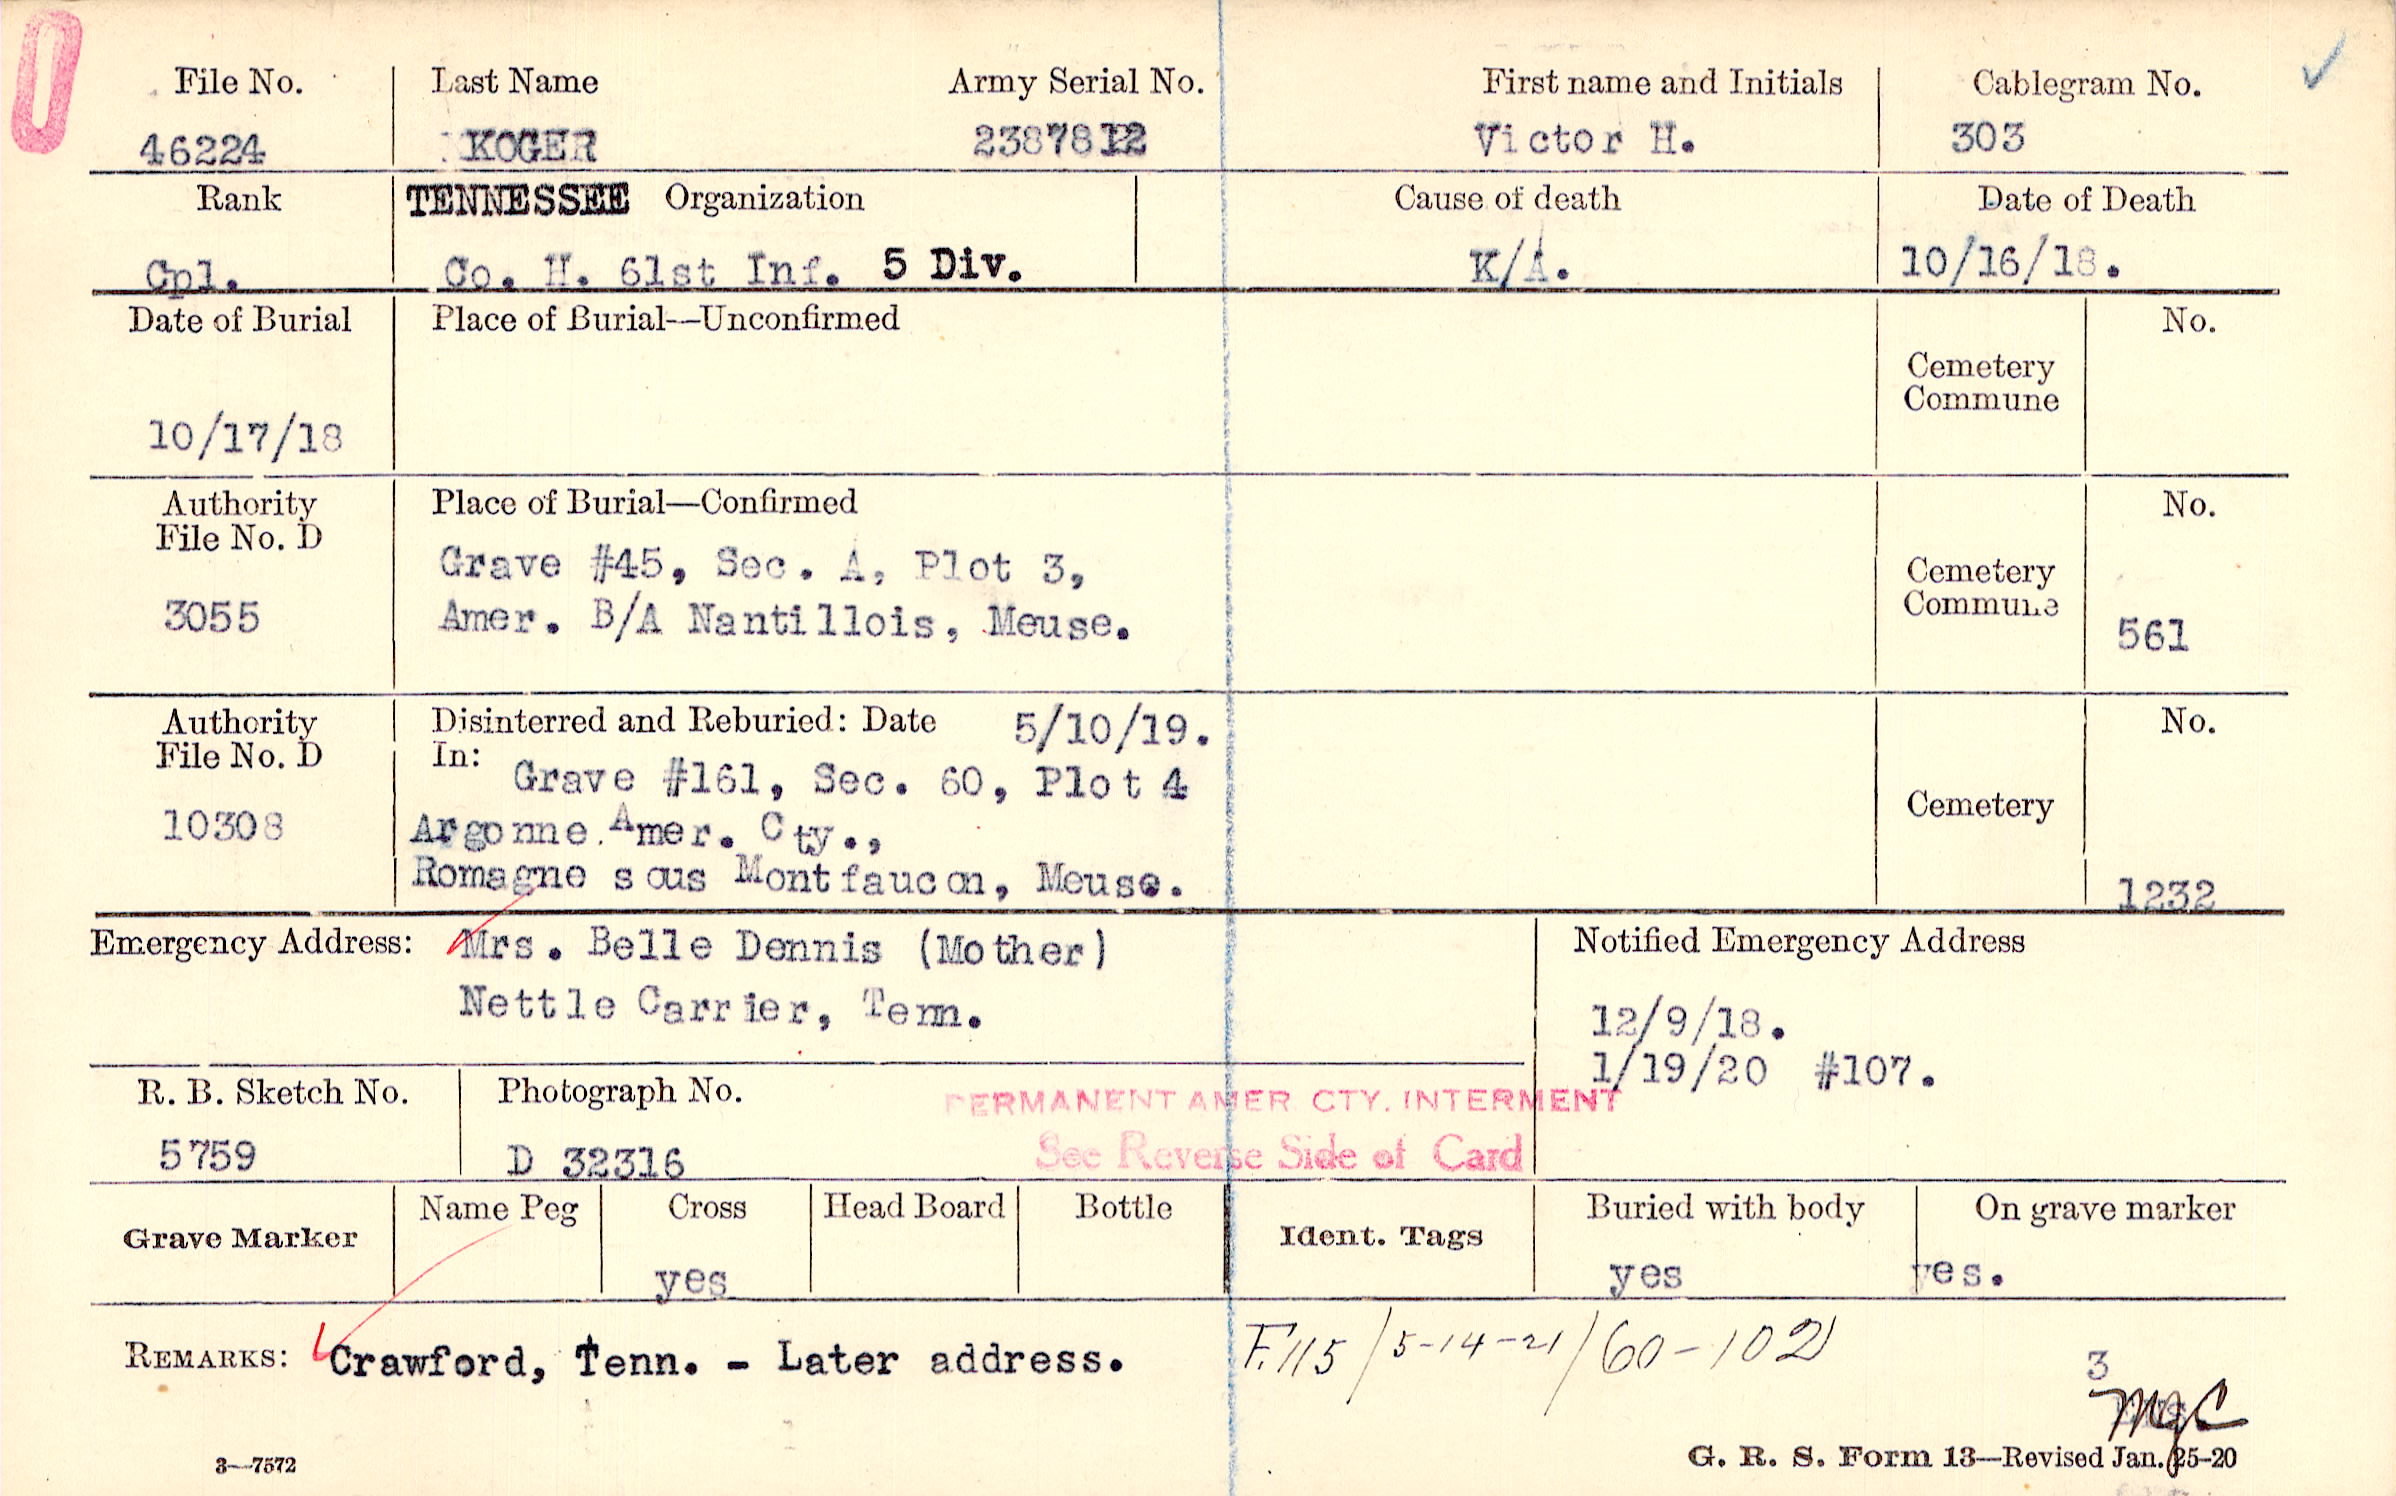 File No. Last Name Army Serial No. First name and Initials Cablegram No.
46224 KOGER 2387812 Victor H. 303
Rank TENNESSEE Organization Cause of death Date of Death
Cpl. Co. H. 61st Inf. 5 Div. K/A. 10/16/18.
Date of Burial Place of Burial—Unconfirmed No.
Cemetery
Commune
10/17/18
Authority Place of Burial—Confirmed No.
File No. D
Grave #45, Sec. A, Plot 3, Cemetery
3055 Amer. B/A Nantillois, Meuse. Commune 561
Authority Disinterred and Reburied: Date 5/10/19. No.
File No. D In: Grave #161, Sec. 60, Plot 4
10308 Argonne Amer. Cty., Cemetery
Romagne sous Montfaucon, Meuse. 1232
Emergency Address: Mrs. Belle Dennis (Mother) Notified Emergency Address
Nettle Carrier, Tenn. 12/9/18.
1/19/20 #107.
R. B. Sketch No. Photograph No. PERMANENT AMER CTY. INTERMENT
5759 D 32316 See Reverse Side of Card
Grave Marker Name Peg Cross Head Board Bottle Ident. Tags Buried with body On grave marker
yes yes yes.
REMARKS: Crawford, Tenn. - Later address. F.115/5-14-21/60-102
3
MJC
3—7572 G. R. S. Form 13—Revised Jan. 25-20